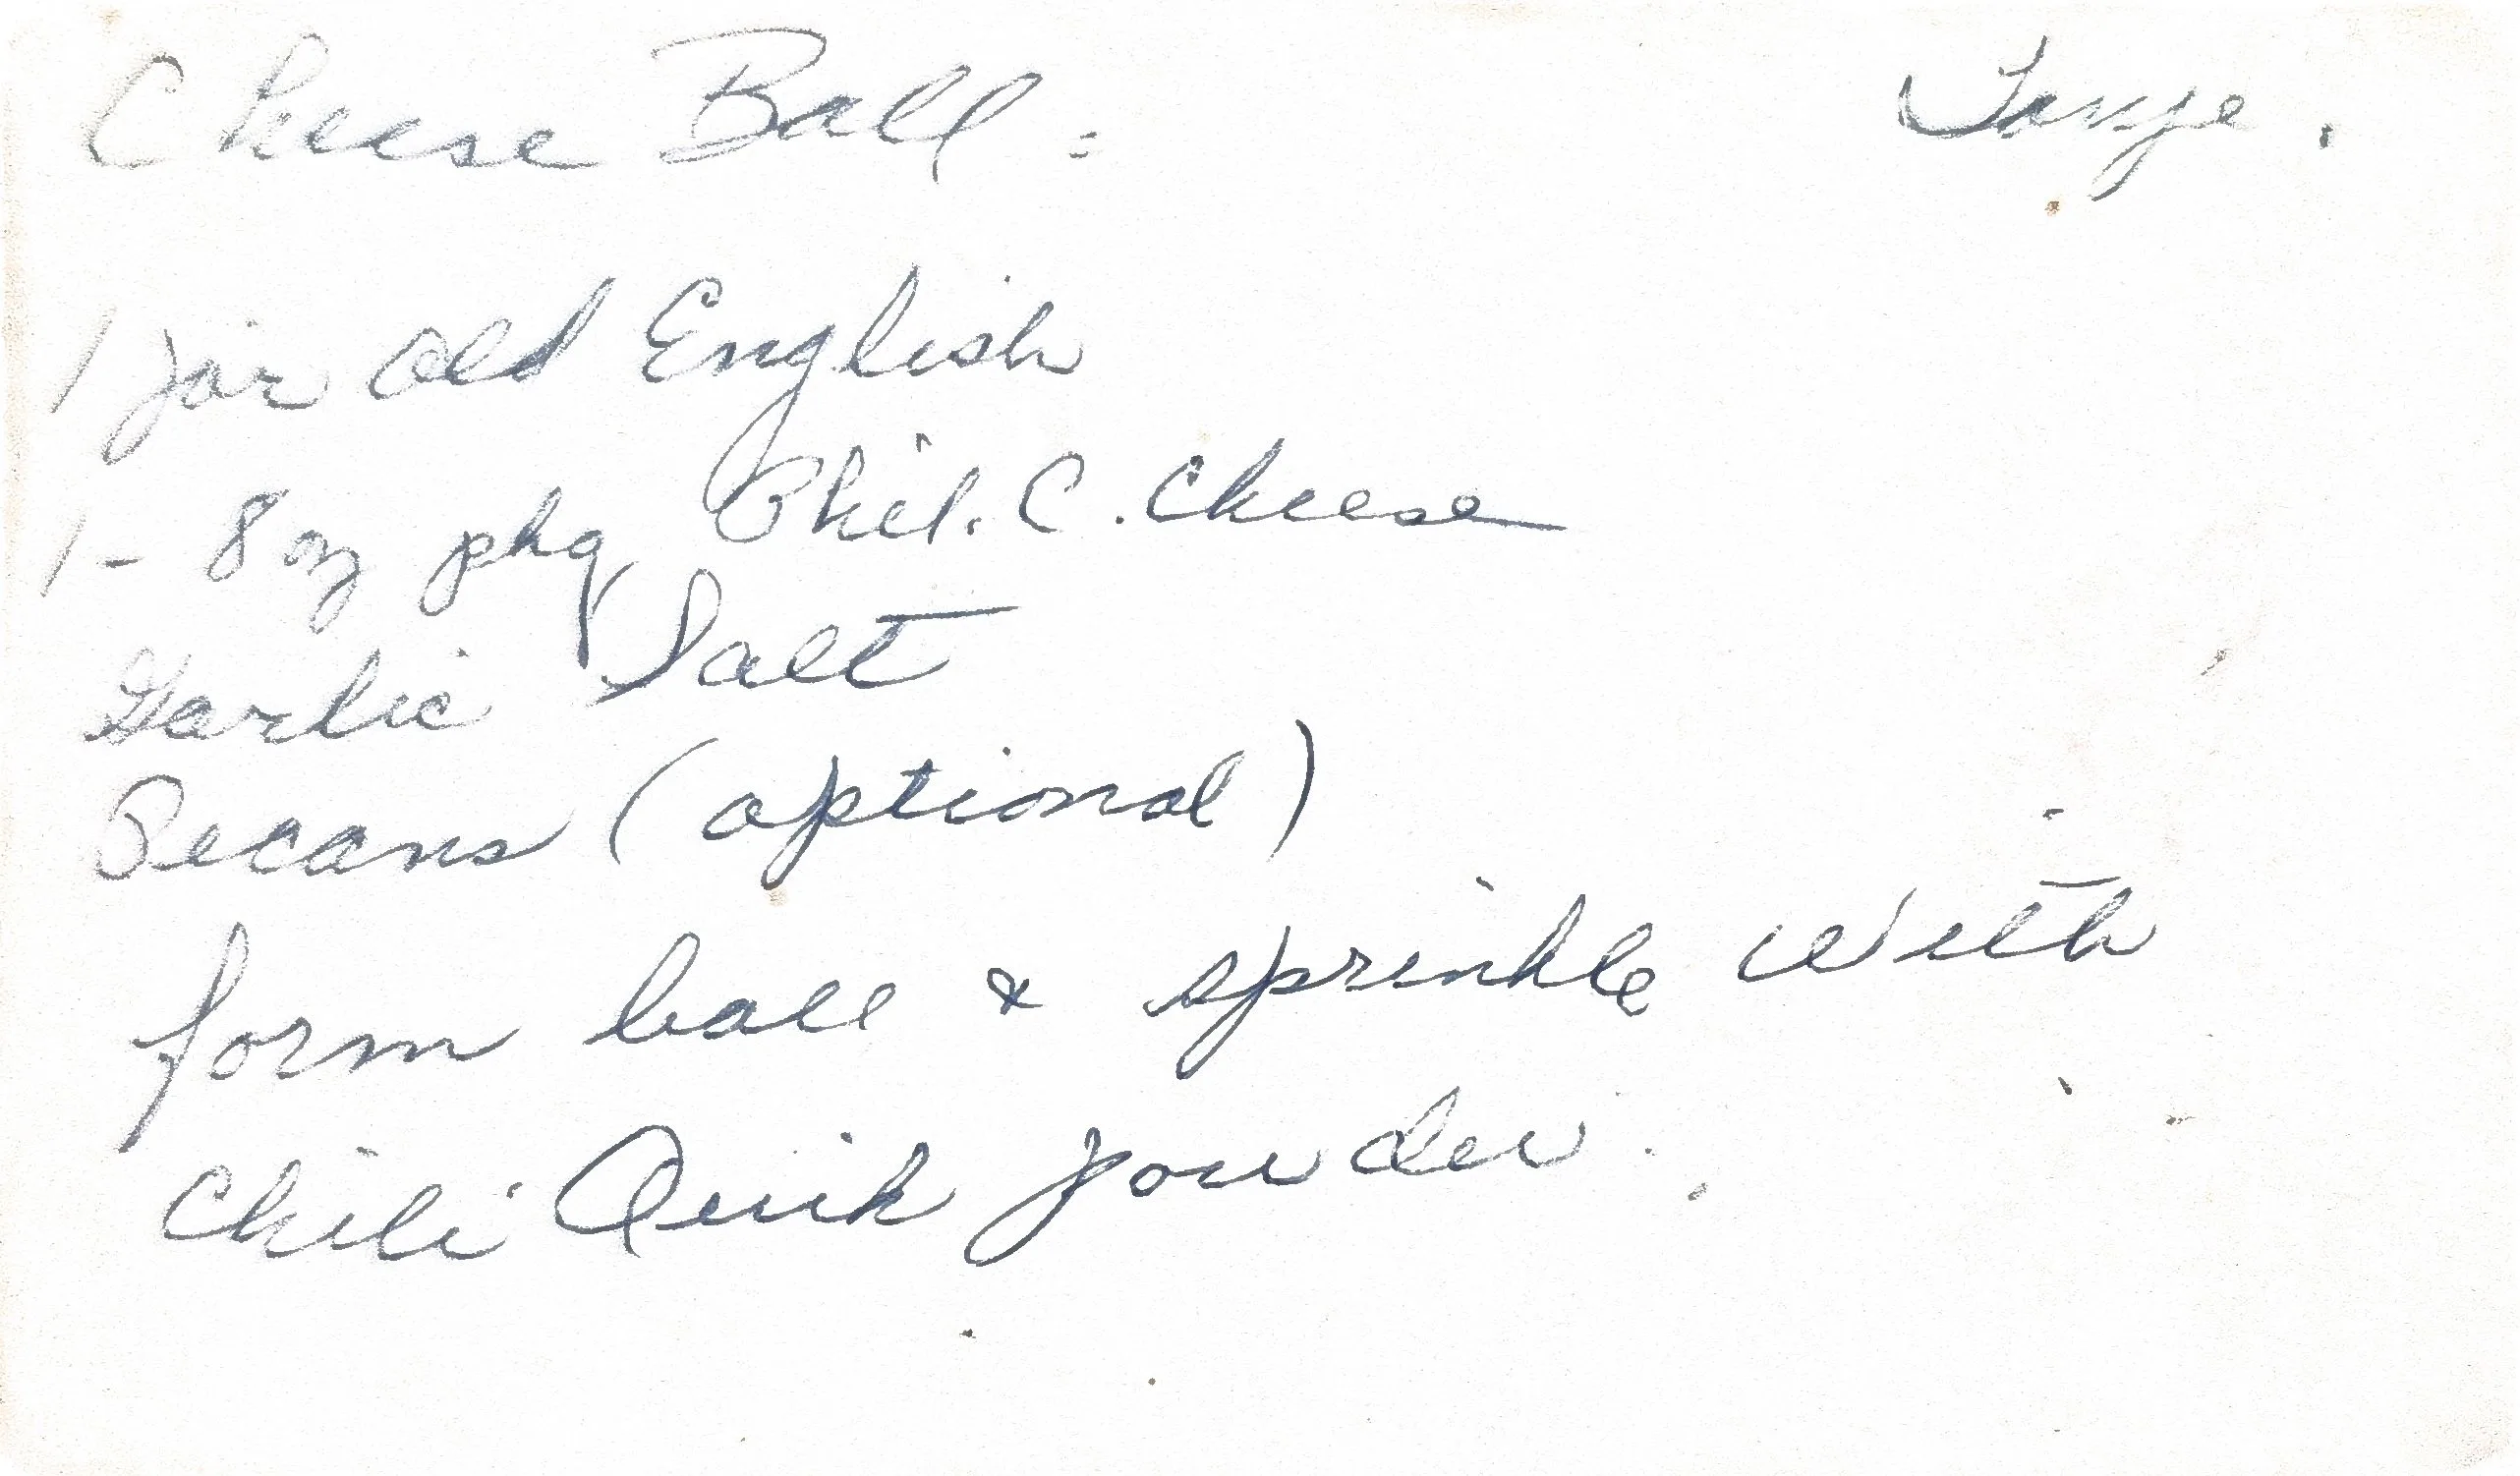 Cheese Ball.
1 jar Old English
1 - 8 oz pkg Phil. C. Cheese
Garlic Salt
Pecans (optional)
form ball & sprinkle with
Chili Quik powder.